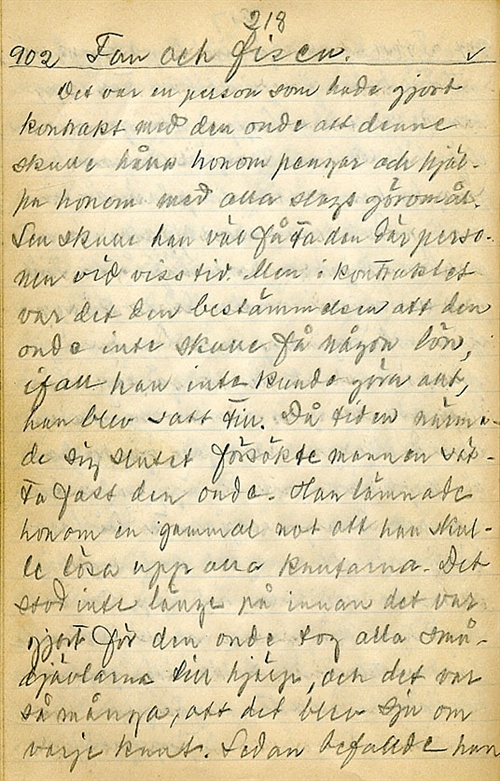 218
902 Fan och fisen.
Det var en person som hade gjort
kontrakt med den onde att denne
skulle hålla honom pengar och hjäl-
pa honom med alla slags göromål.
Sen skulle han väl få ta den där perso-
nen vid viss tid. Men i kontraktet
var det den bestämmelsen att den
onde inte skulle få någon lön,
ifall han inte kunde göra allt,
han blev satt till. Då tiden närma-
de sig slutet försökte mannen sät-
ta fast den onde. Han lämnade
honom en gammal not att han skul-
le lösa upp alla knutarna. Det
stod inte länge på innan det var
gjort för den onde tog alla små-
djävlarna till hjälp, och det var
så många, att det blev sju om
varje knut. Sedan befallde han